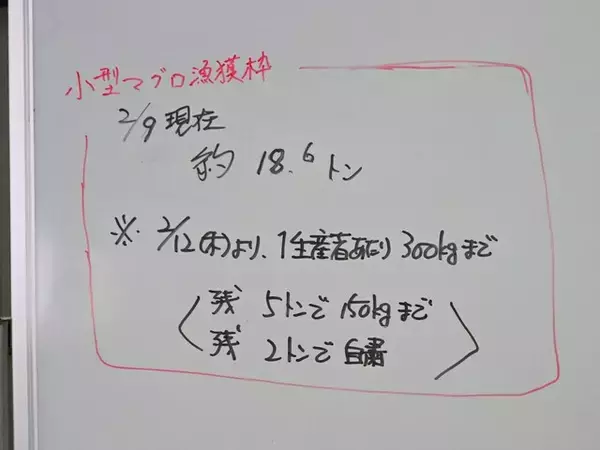 小型マグロ漁獲枠
2/9現在
約 18.6トン
※ 2/12(木)より、1生産者あたり 300kgまで
残 5トンで 150kgまで
残 2トンで 自粛